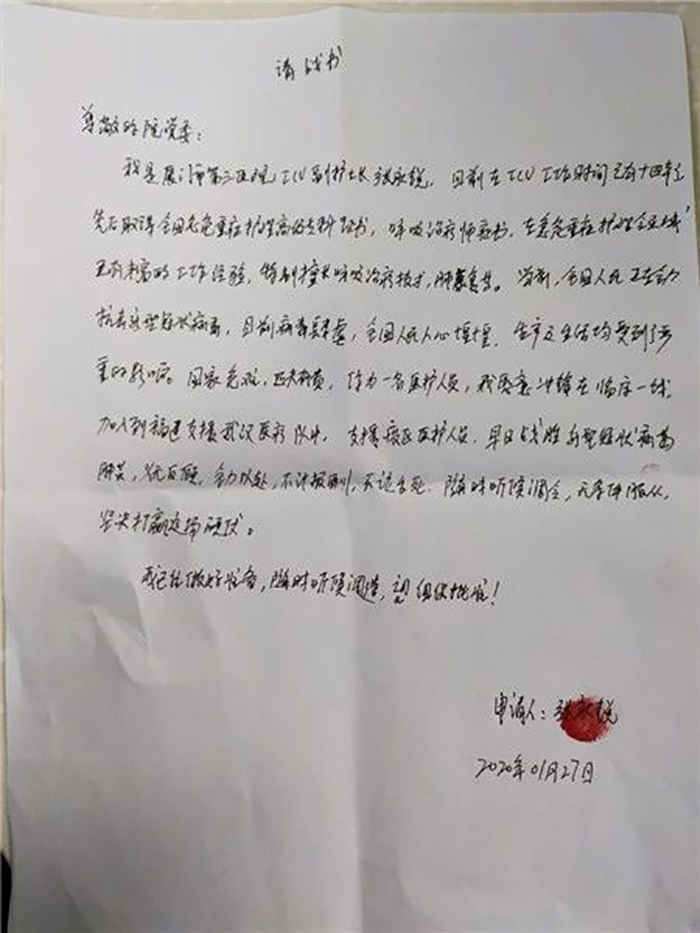 请战书
尊敬的院党委：
我是厦门市第三医院ICU副护士长张永锐，目前在ICU工作时间已有十四年了
先后取得全国危重症护理高级专科证书，呼吸治疗师证书，在急危重症护理专业上
已有丰富的工作经验，特别擅长呼吸治疗技术，肺康复等。当前，全国人民正在全力
抗击新型冠状病毒，目前病毒肆虐，全国人民人心惶惶，生产及生活均受到了严
重的影响。国家危难，匹夫有责，作为一名医护人员，我愿意冲锋在临床一线，
加入到福建支援武汉医疗队中，支援疫区医护人员，早日战胜新型冠状病毒
肺炎，义无反顾，全力以赴，不计报酬，不论生死，随时听候调令，无条件服从，
坚决打赢这场硬仗。
我已经做好准备，随时听候调遣，望组织批准！
申请人：张永锐
2020年01月27日